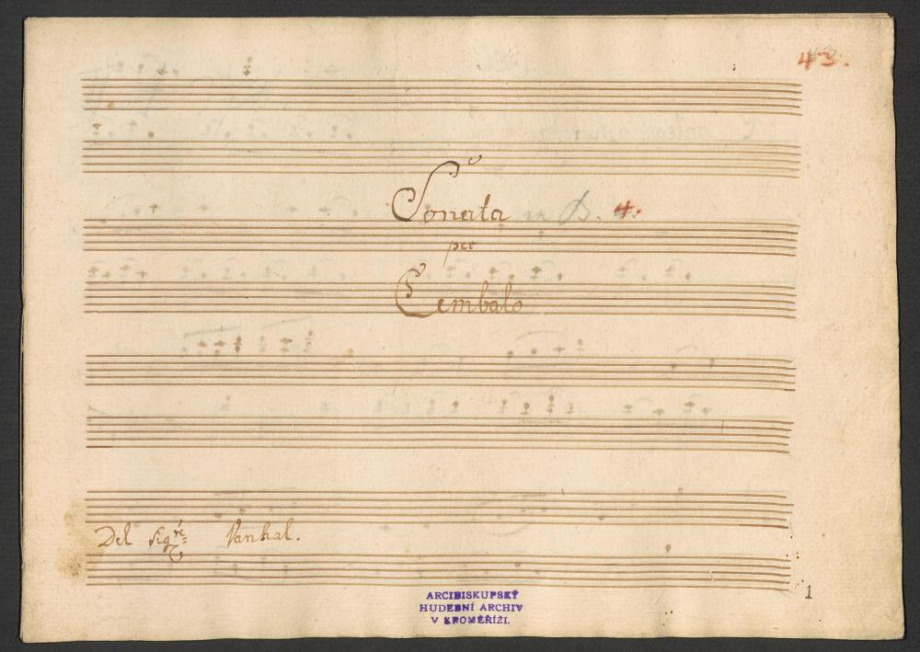 43.
Sonata in B. 4.
per
Cembalo
Del Sigre: Vanhal.
1
ARCIBISKUPSKÝ
HUDEBNÍ ARCHIV
V KROMĚŘÍŽI.